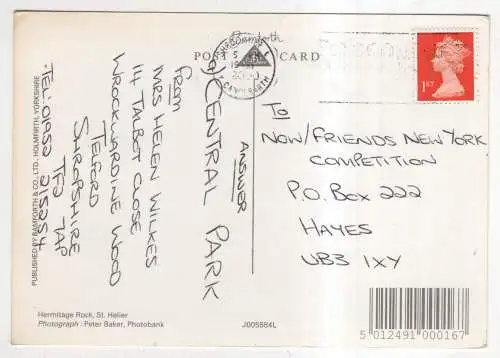 Bamforth
POST CARD
1ST
TO
NOW/FRIENDS NEW YORK
COMPETITION
P.O. BOX 222
HAYES
UB3 1XY
ANSWER
a) CENTRAL PARK
FROM
MRS HELEN WILKES
14 TALBOT CLOSE
WROCKWARDINE WOOD
TELFORD
SHROPSHIRE
TF2 7AP
TEL: 01952
PUBLISHED BY BAMFORTH & CO., LTD. HOLMFIRTH, YORKSHIRE
Hermitage Rock, St. Helier
Photograph : Peter Baker, Photobank
J005584L
5 012491 000167